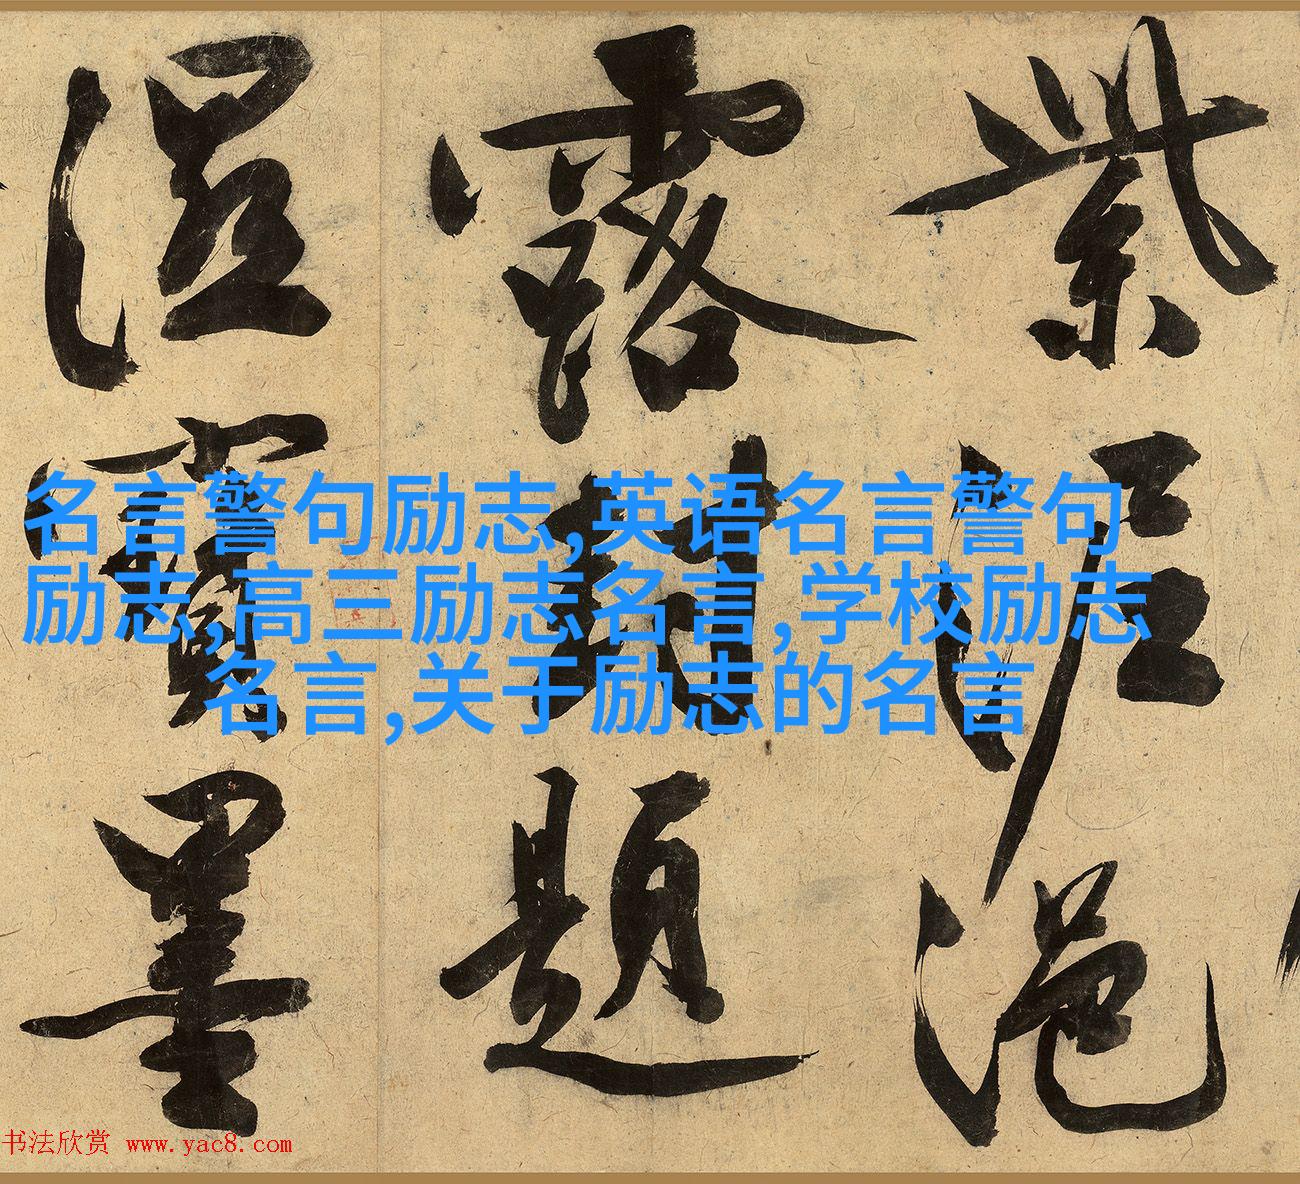 紫泥浥
露封題
溼寶墨
名言警句励志,英语名言警句
励志,高三励志名言,学校励志
名言,关于励志的名言
书法欣赏 www.yac8.com